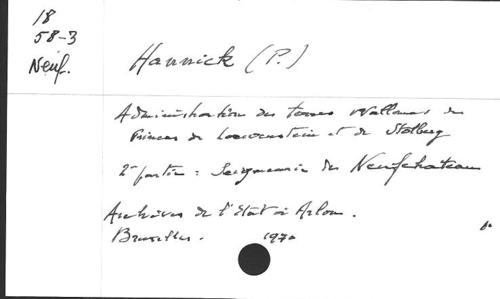 18
58-3
Neuf.
Hannick (P.)
Administration des terres Wallonnes des
Princes de Loewenstein et de Stolberg
2e partie : Seigneurie de Neufchateau
Archives de l'Etat à Arlon.
Bruxelles. 1970